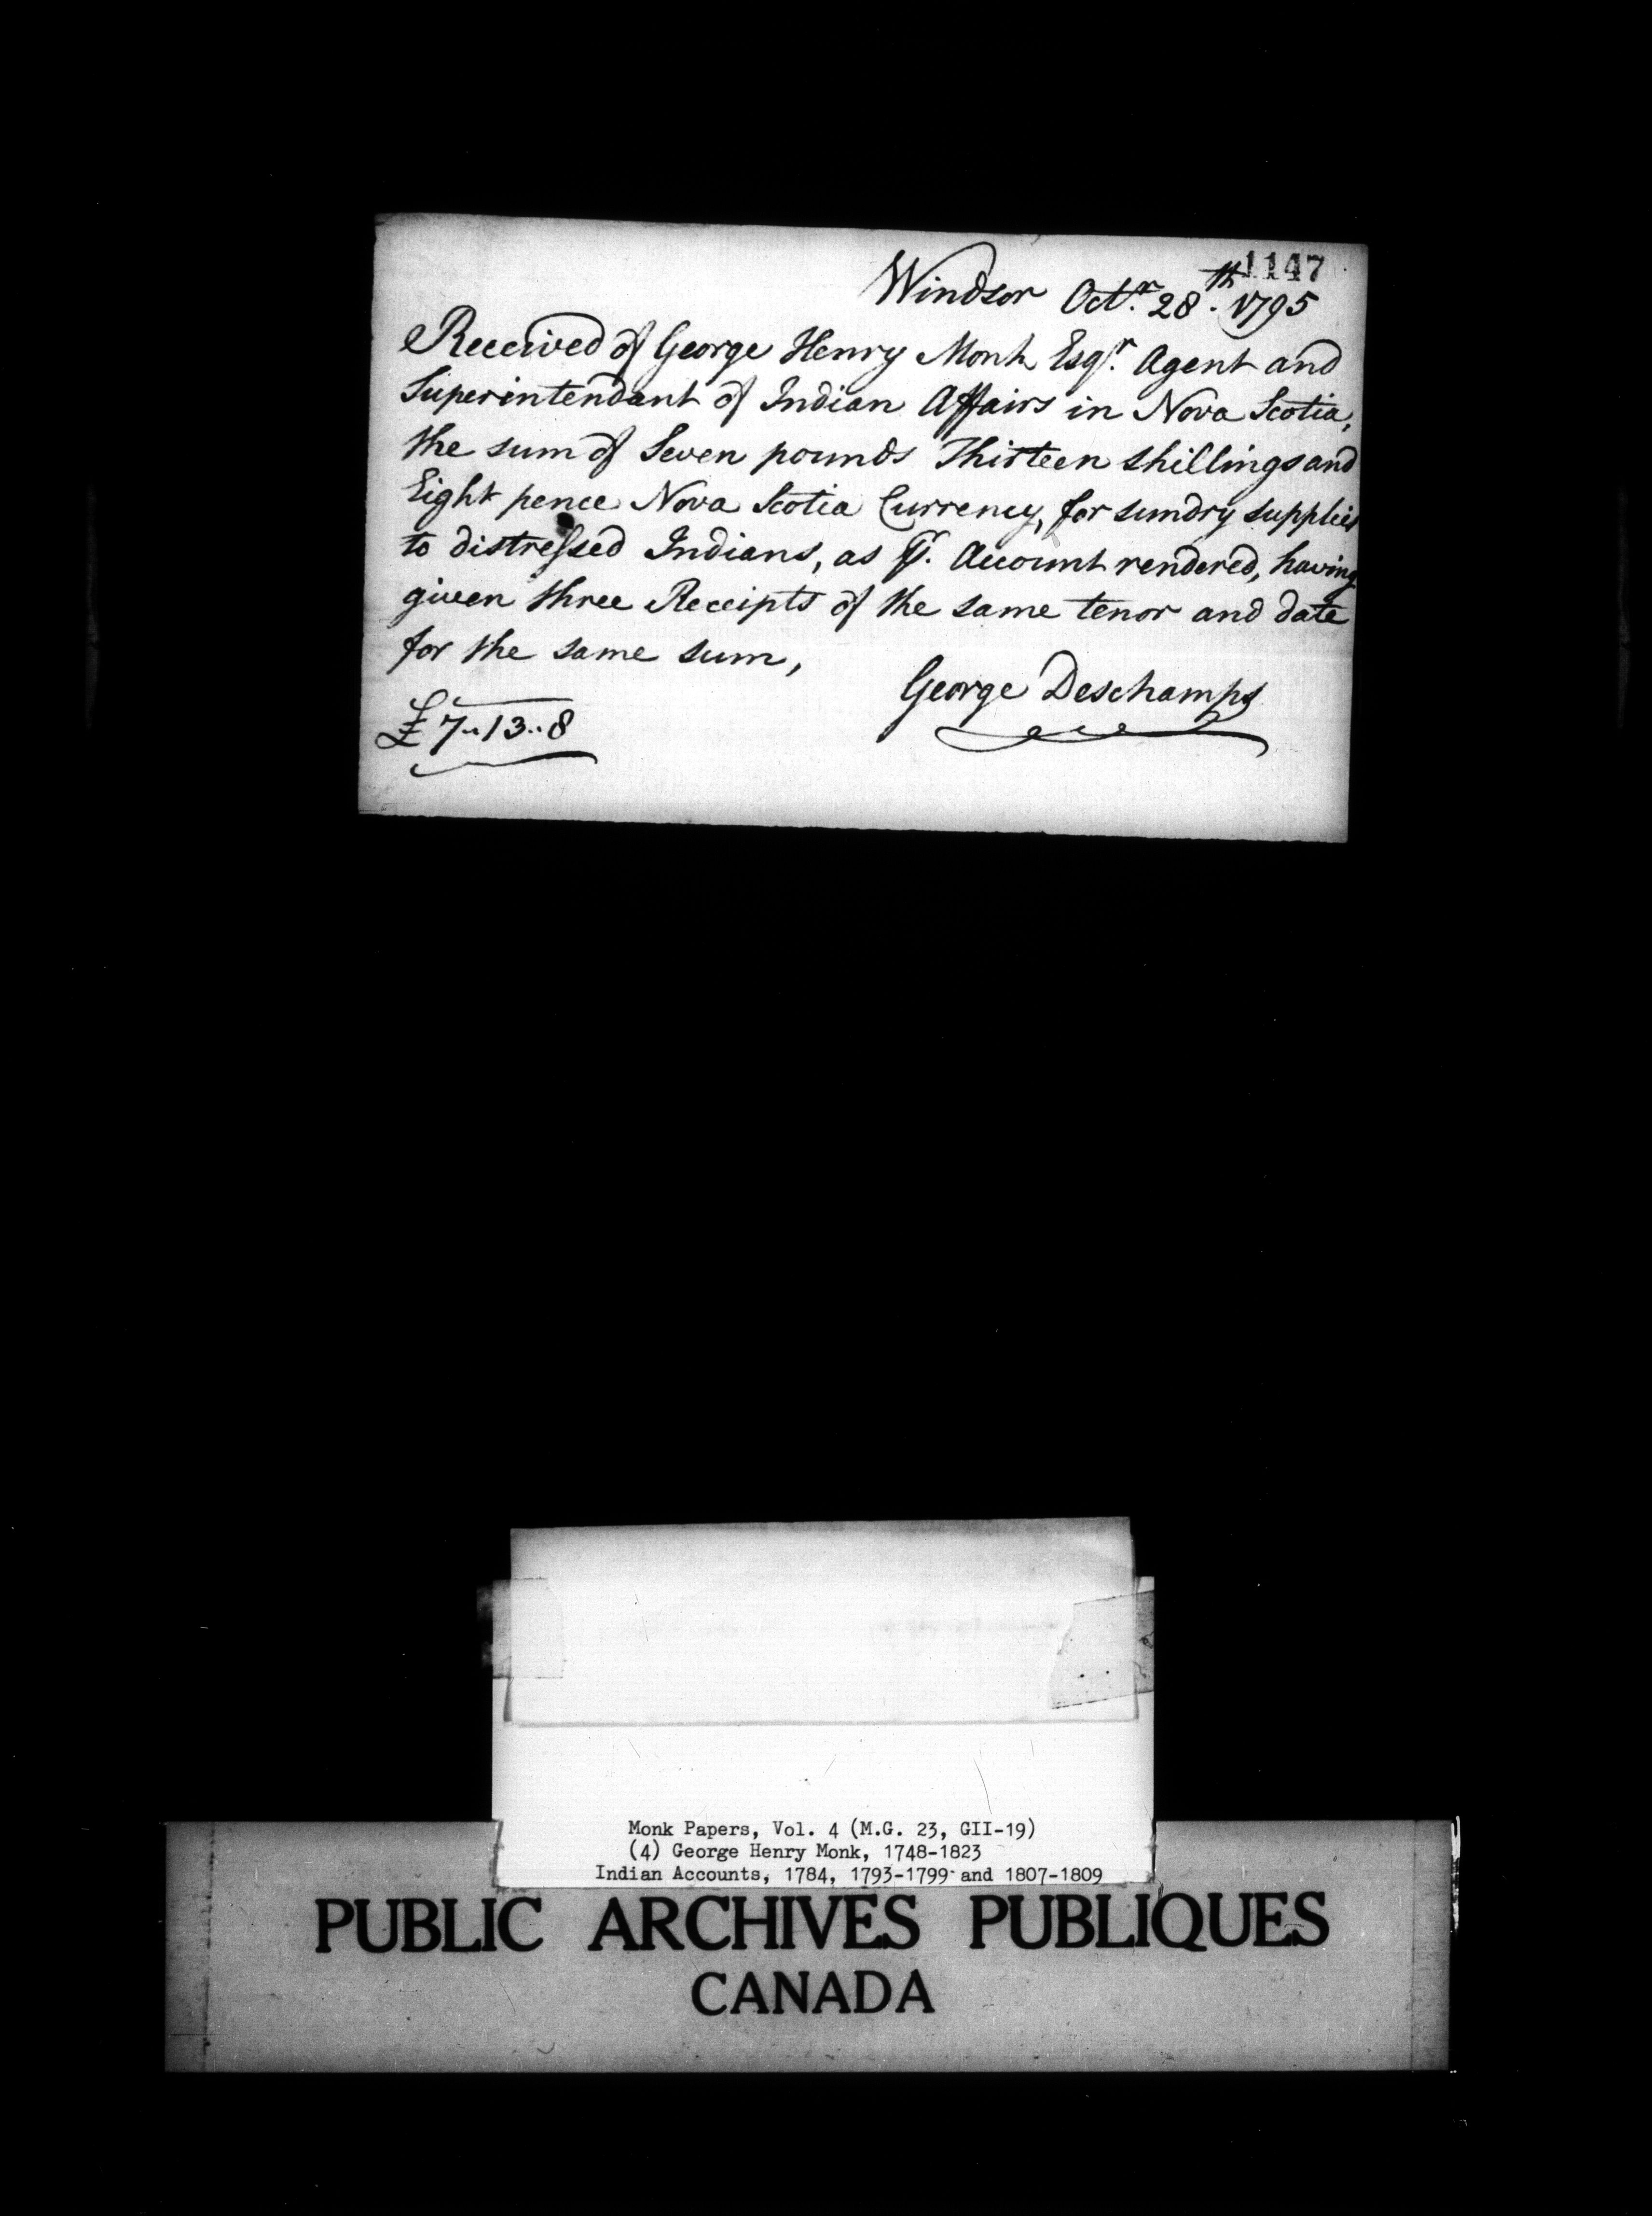 1147
Windsor Octr. 28th. 1795
Received of George Henry Monk Esqr. Agent and
Superintendant of Indian Affairs in Nova Scotia,
the sum of Seven pounds Thirteen shillings and
Eight pence Nova Scotia Currency, for sundry supplies
to distressed Indians, as pr. Account rendered, having
given three Receipts of the same tenor and date
for the same sum,
George Deschamps
£7..13..8
Monk Papers, Vol. 4 (M.G. 23, GII-19)
(4) George Henry Monk, 1748-1823
Indian Accounts, 1784, 1793-1799 and 1807-1809
PUBLIC ARCHIVES PUBLIQUES
CANADA